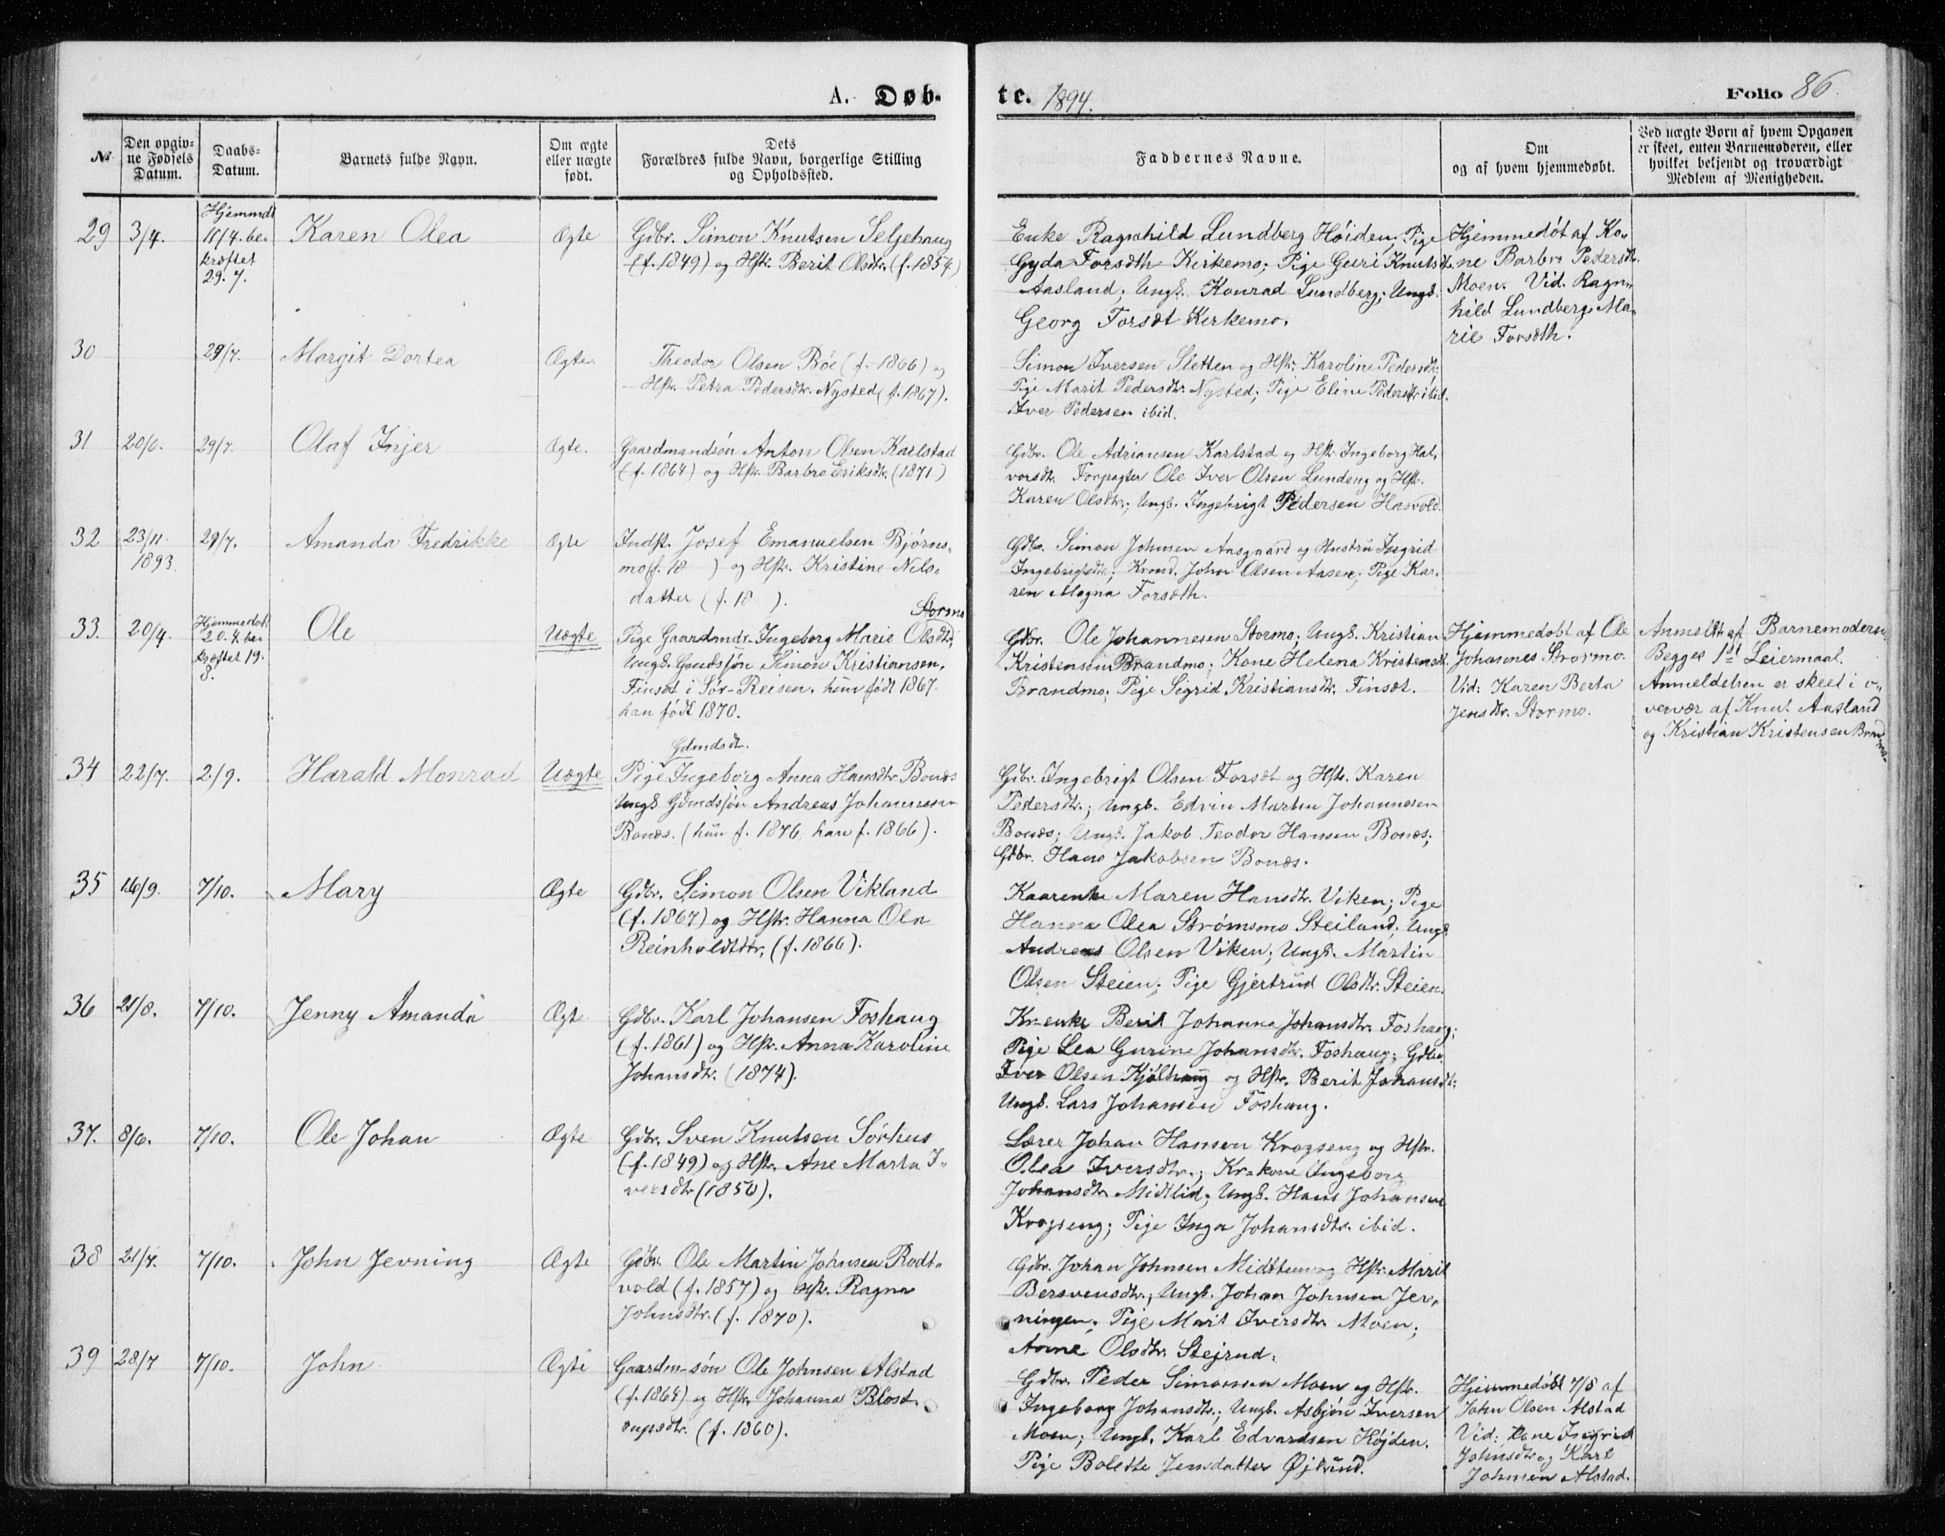 A. Døb-
te. 1894.
Folio 86.
No
Den opgiv-
ne Fødsels
Datum.
Daabs-
Datum.
Barnets fulde Navn.
Om ægte
eller uægte
født.
Dets
Forældres fulde Navn, borgerlige Stilling
og Opholdssted.
Faddernes Navne.
Om
og af hvem hjemmedøbt.
Ved uægte Børn af hvem Opgaven
er skeet, enten Barnemoderen, eller
hvilket bekjendt og troværdigt
Medlem af Menigheden.
29
3/4.
Hjemmdt
11/4. be-
kræftet
29. 7.
Karen Olea
Ægte
Gdbr. Simon Knutsen Seljehaug
(f. 1849) og Hstr. Berit Olsdtr. (f. 1854)
Enke Ragnhild Lundberg Høiden; Pige
Gyda Forsdth Kirkemo; Pige Guri Knutsdtr.
Aasland; Ungk. Konrad Lundberg; Ungk.
Georg Forsæt Kirkemo.
Hjemmedøt af Ko-
ne Barbro Pedersdtr.
Moen. Vid. Ragn-
hild Lundberg. Ma-
rie Forsdth.
30
29/7.
Margit Dortea
Ægte.
Theodor Olsen Böe (f. 1866) og
Hstr. Petra Pedersdtr. Nysted (f. 1867).
Simon Iversen Sletten og Hstr. Karoline Pedersdtr,
Pige Marit Pedersdtr. Nysted; Pige Eline Pedersdtr ibid.
Iver Pedersen ibid.
31
20/6.
29/7.
Olaf Injer
Ægte.
Gaardmandsön Anton Olsen Karlstad
(f. 1864) og Hstr. Barbro Eriksdtr. (1871)
Gdbr. Ole Adriansen Karlstad og Hstr. Ingeborg Hal-
vorsdtr. Forpagter Ole Iver Olsen Lundeng og Hstr.
Karen Olsdtr.; Ungk. Ingebrigt Pedersen Hasvold.
32
23/11.
1893.
29/7.
Amanda Fredrikke
Ægte
Indst. Josef Emanuelsen Bjørns-
mo (f. 18 ) og Hstr. Kristine Nils-
datter (f. 18 ).
Gdbr. Simon Johnsen Aasgaard og Hustru Ingrid
Ingebrigtsdtr; John Olsen Aasen; Pige Ka-
ren Magna Forsæth.
33.
20/4.
Hjemmedøbt
20. 4. be-
kræftet 19.
8.
Ole
Uægte
Stormo
Pige Gaardmdr. Ingeborg Marie Olsdtr.
Ungk. Gmdssøn Simon Kristiansen,
Finset i Sør-Reisen, hun født 1867.
han født 1870.
Gdbr. Ole Johannesen Stormo; Ungk. Kristian
Kristensen Brandmo; Kone Helena Kristensdtr.
Brandmo, Pige Sigrid Kristiansdtr. Finsæt.
Hjemmedøbt af Ole
Johannes Stormo.
Vid: Karen Berta
Jensdtr. Stormo.
Anmeldt af Barnemoderen
Begges 1ste Leiermaal.
Anmeldelsen er skeet i o-
vervær af Knut Aasland
og Kristian Kristensen
34
22/7.
2/9.
Harald Monrad
Uægte
Gdmdsdtr.
Pige Ingeborg Anna Hansdtr Bonæs
Ungk. Gdmdssøn Andreas Johannesen
Bonæs. (hun f. 1876, han f. 1866).
Gdbr. Ingebrigt Olsen Forsæt og Hstr. Karen
Pedersdtr.; Ungk. Edvin Martin Johannesen
Bonæs; Ungk. Jakob Teodor Hansen Bonæs;
Gdbr. Hans Jakobsen Bonæs.
35
16/9.
7/10.
Mary
Ægte
Gdbr. Simon Olsen Vikland
(f. 1867) og Hstr. Hanna Ola
Reinholdtdtr. (f. 1866).
Kaarenke Maren Hansdtr. Viken; Pige
Hanna Olea Strømsmo Steiland; Ungk.
Andreas Olsen Viken; Ungk. Martin
Olsen Steien; Pige Gjertrud Olsdtr. Steien.
36
21/8.
7/10.
Jenny Amanda
Ægte
Gdbr. Karl Johansen Foshaug
(f. 1861) og Hstr. Anna Karoline
Johansdtr. (1874).
Kr. enke Berit Johanna Johansdtr. Foshaug;
Pige Lea Gurine Johansdtr. Foshaug; Gdbr.
Iver Olsen Kjølhaug og Hstr. Berit Johansdtr.
Ungk. Lars Johansen Foshaug.
37.
8/6.
7/10.
Ole Johan
Ægte
Gdbr. Sven Knutsen Sørhus
(f. 1849) og Hstr. Ane Marta I-
versdtr (1850).
Lærer Johan Hansen Krogseng og Hstr.
Olea Iversdtr.; Kr. kone Ingeborg
Johansdtr. Midtlid; Ungk. Hans Johansen
Krogseng; Pige Inga Johansdtr. ibid.
38
21/7.
7/10.
John Jevning
Ægte
Gdbr. Ole Martin Johnsen Rodt-
vold (f. 1857) og Hstr. Ragna
Johnsdtr. (f. 1870).
Gdbr. Johan Johnsen Midttun og Hstr. Marit
Bersvensdtr.; Ungk. Johan Johnsen Jev-
ningen; Pige Marit Iversdtr. Moen;
Anne Olsdtr. Stejrud.
39
28/7
7/10.
John
Ægte
Gaardm-søn Ole Johnsen Alstad
(f. 1864) og Hstr. Johanna Blost-
rupsdtr. (f. 1860).
Gdbr. Peder Simonsen Moen og Hstr.
Ingeborg Johansdtr.; Ungk. Asbjøn Iversen
Moen; Ungk. Karl Edvardsen Højden.
Pige Bolette Jensdatter Øjtrund.
Hjemmedøbt 7/8 af
John Olsen Alstad
Vid: Kone Ingrid
Johnsdtr og Karl
Johnsen Alstad.